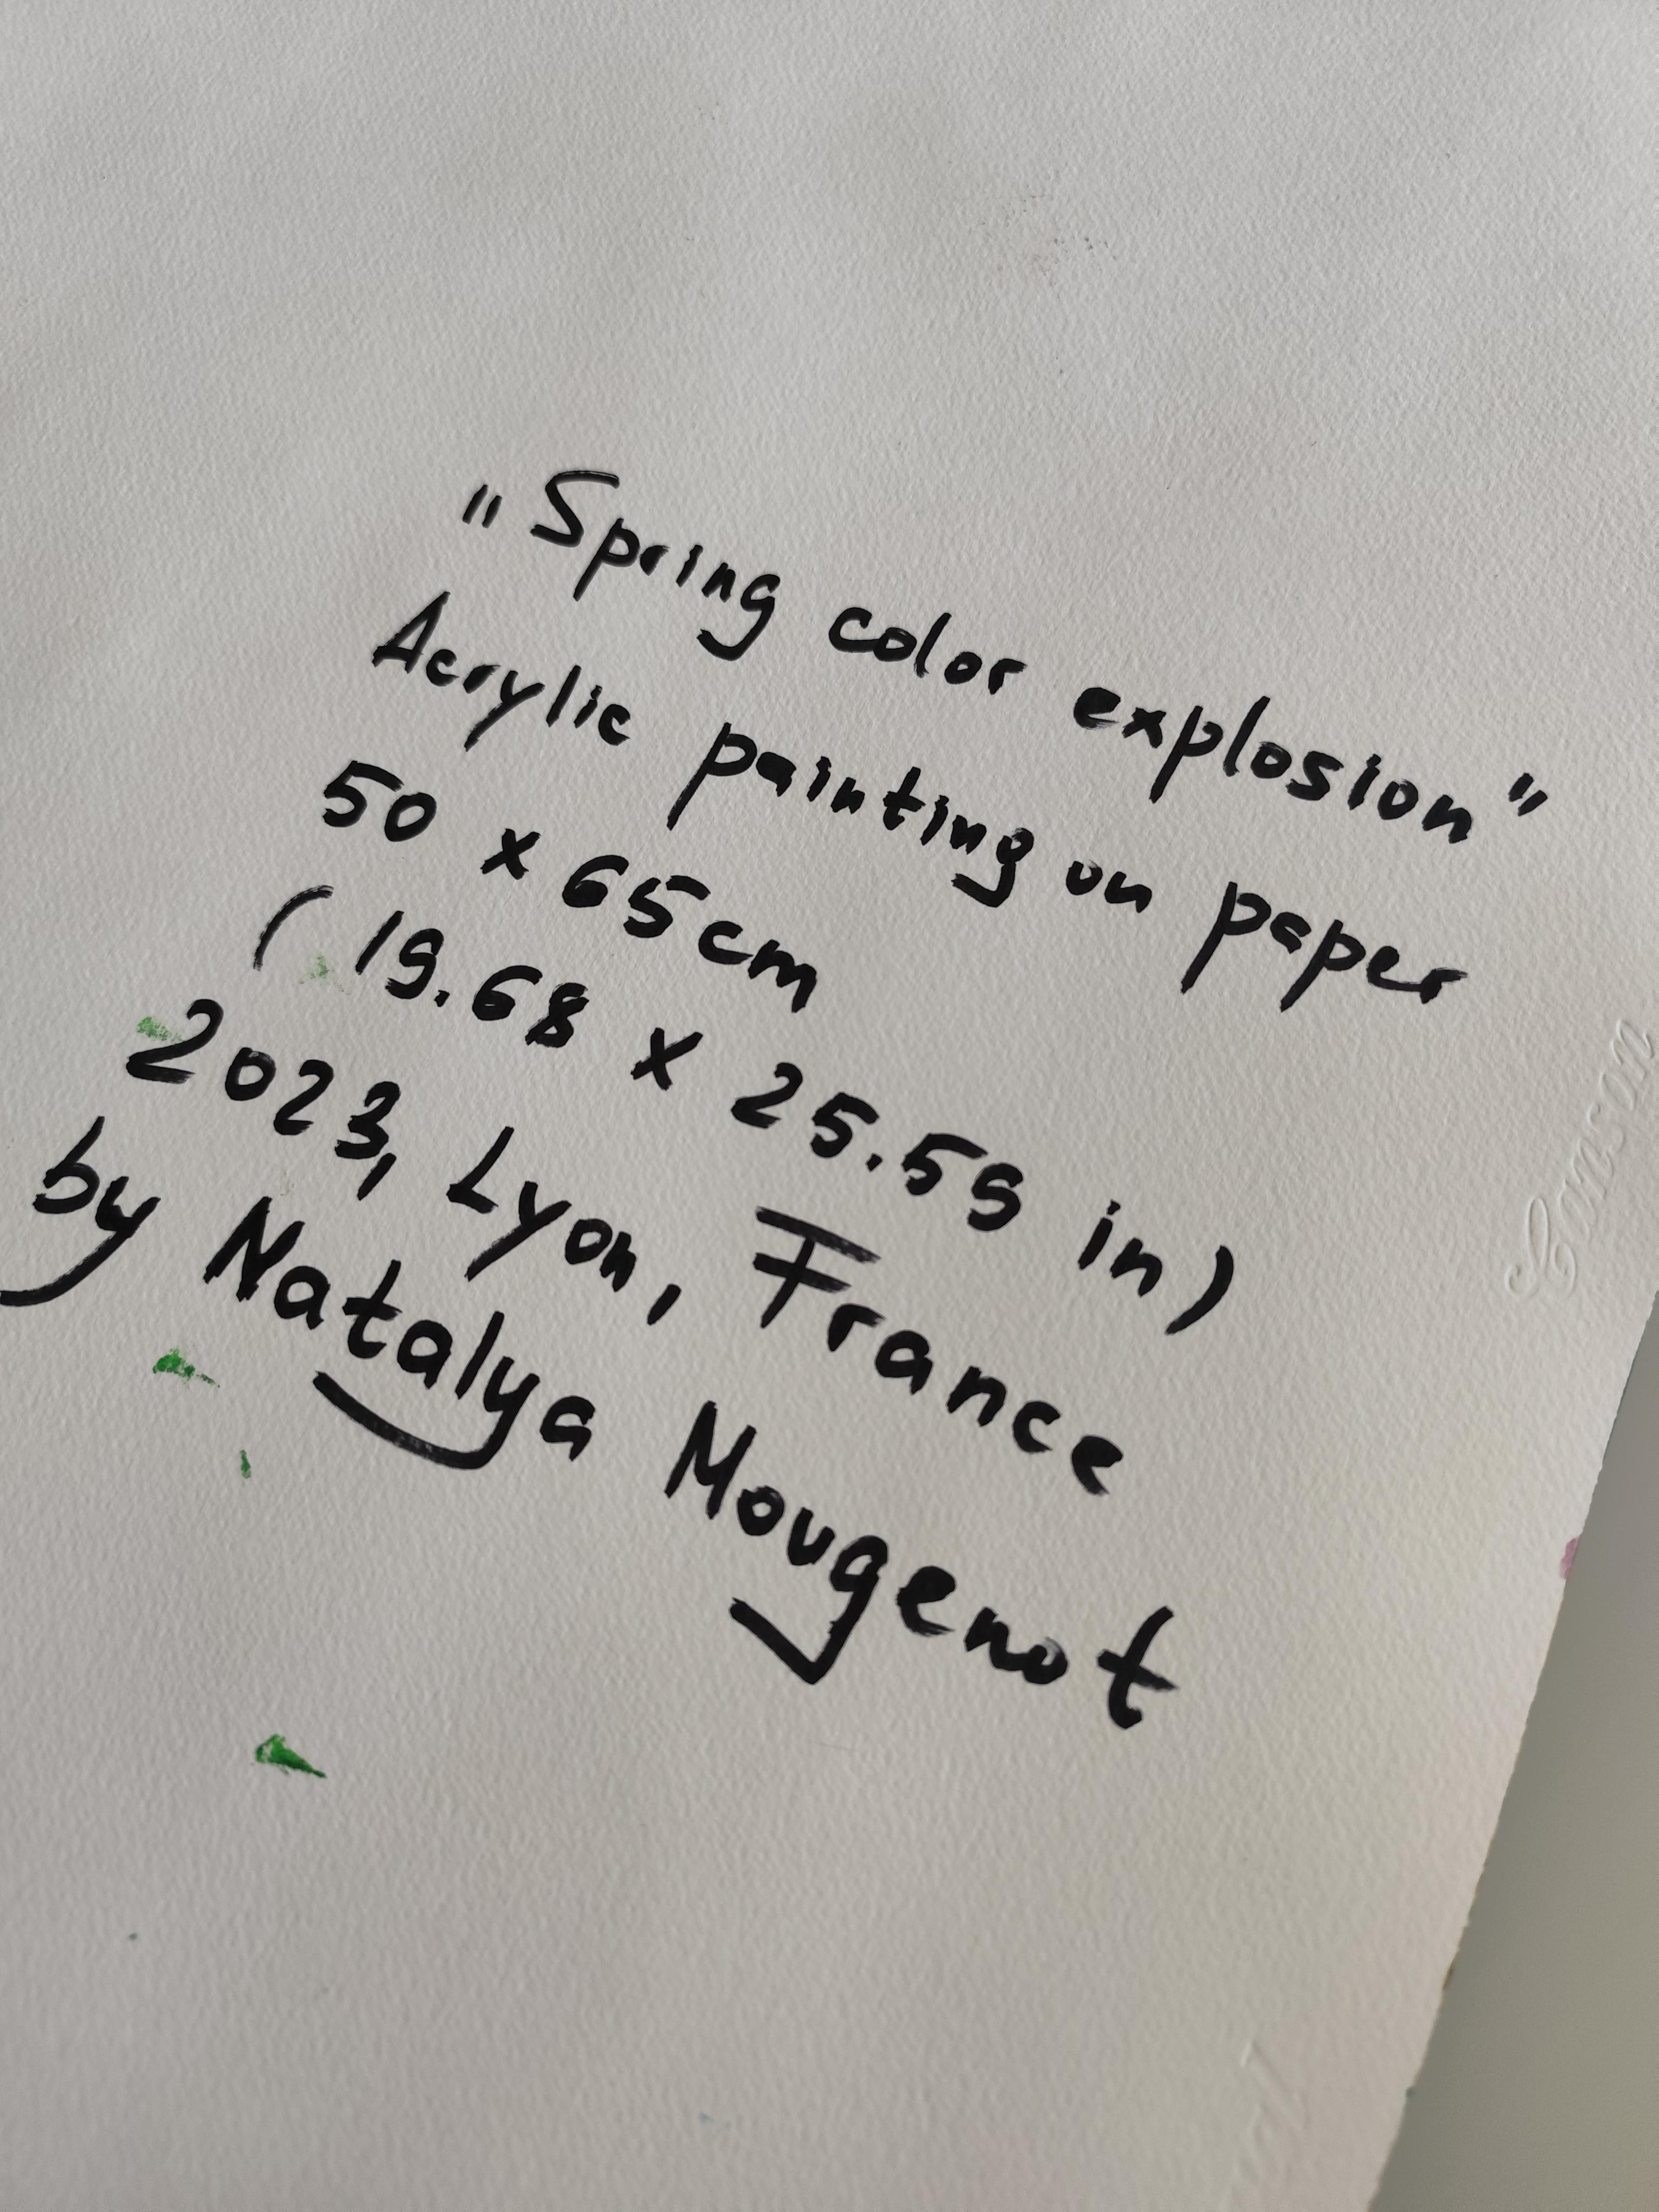 "Spring color explosion"
Acrylic painting on paper
50 x 65cm
( 19.68 x 25.59 in)
2023, Lyon, France
by Natalya Mougenot
Sanson